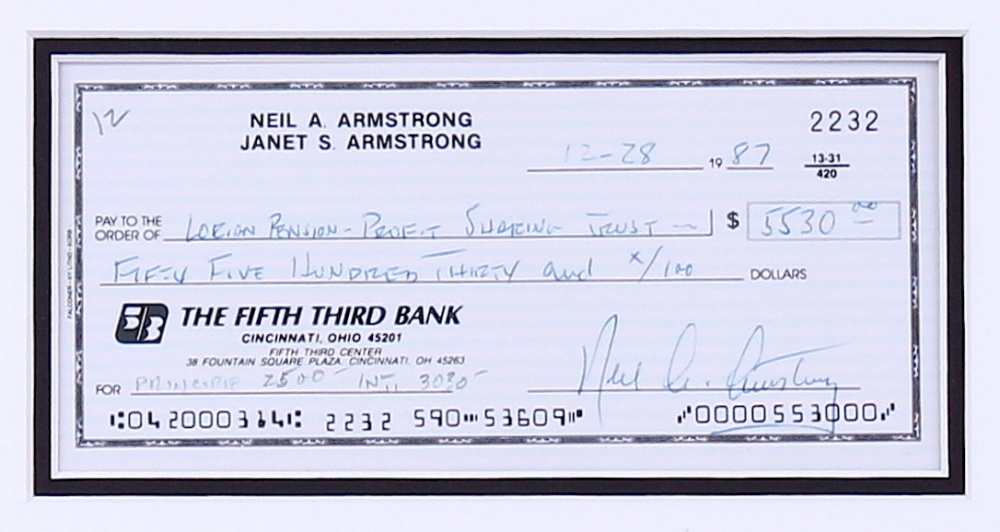 12
NEIL A. ARMSTRONG
JANET S. ARMSTRONG
2232
12-28 19 87
13-31
420
PAY TO THE
ORDER OF LORION PENSION-PROFIT SHARING TRUST $ 5530 00
FIFTY FIVE HUNDRED THIRTY and X/100 DOLLARS
53 THE FIFTH THIRD BANK
CINCINNATI, OHIO 45201
FIFTH THIRD CENTER
38 FOUNTAIN SQUARE PLAZA, CINCINNATI, OH 45263
FOR PRINCIPLE 2500 - INT. 3030 - Neil A. Armstrong
⑆042000314⑆ 2232 590⑉53609⑈ ⑈0000553000⑈